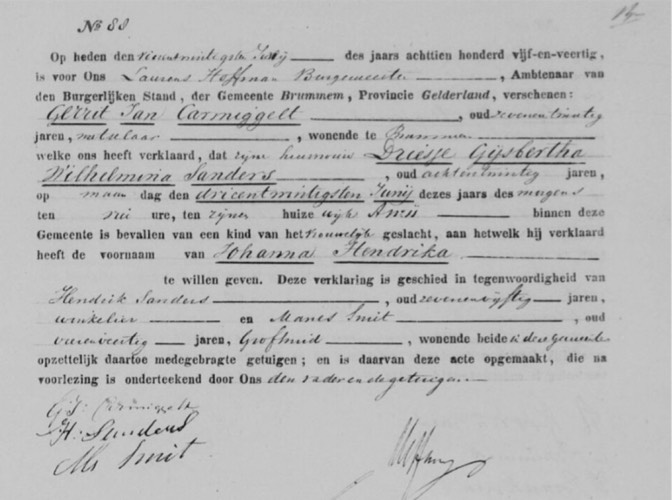 No 88
Op heden den vierentwintigsten Junij des jaars achttien honderd vijf-en-veertig,
is voor Ons Laurens Hoffman Burgemeester, Ambtenaar van
den Burgerlijken Stand, der Gemeente Brummem, Provincie Gelderland, verschenen:
Gerrit Jan Carmiggelt, oud zevenentwintig
jaren, metselaar, wonende te Brummen
welke ons heeft verklaard, dat zijne huisvrouw Driesje Gijsbertha
Wilhelmina Sanders, oud achtentwintig jaren,
op maan dag den drieentwintigsten Junij dezes jaars des morgens
ten ure, ten zijnen huize wijk binnen deze
Gemeente is bevallen van een kind van het vrouwelijk geslacht, aan hetwelk hij verklaard
heeft de voornaam van Johanna Hendrika
te willen geven. Deze verklaring is geschied in tegenwoordigheid van
Hendrik Sanders, oud zevenenvijftig jaren,
winkelier en Manes Smit, oud
vierenveertig jaren, Grofsmid, wonende beide in deze Gemeente
opzettelijk daartoe medegebragte getuigen; en is daarvan deze acte opgemaakt, die na
voorlezing is onderteekend door Ons den vader en de getuigen
GJ: Carmiggelt
H: Sanders
Ms Smit